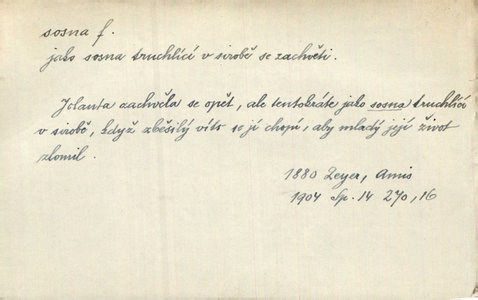 sosna f.
jako sosna truchlící v sirobě se zachvěti.
Jolanta zachvěla se opět, ale tentokráte jako sosna truchlící
v sirobě, když zběsilý vítr se jí chopí, aby mladý její život
zlomil.
1880 Zeyer, Amis
1904 Sp. 14 270, 16